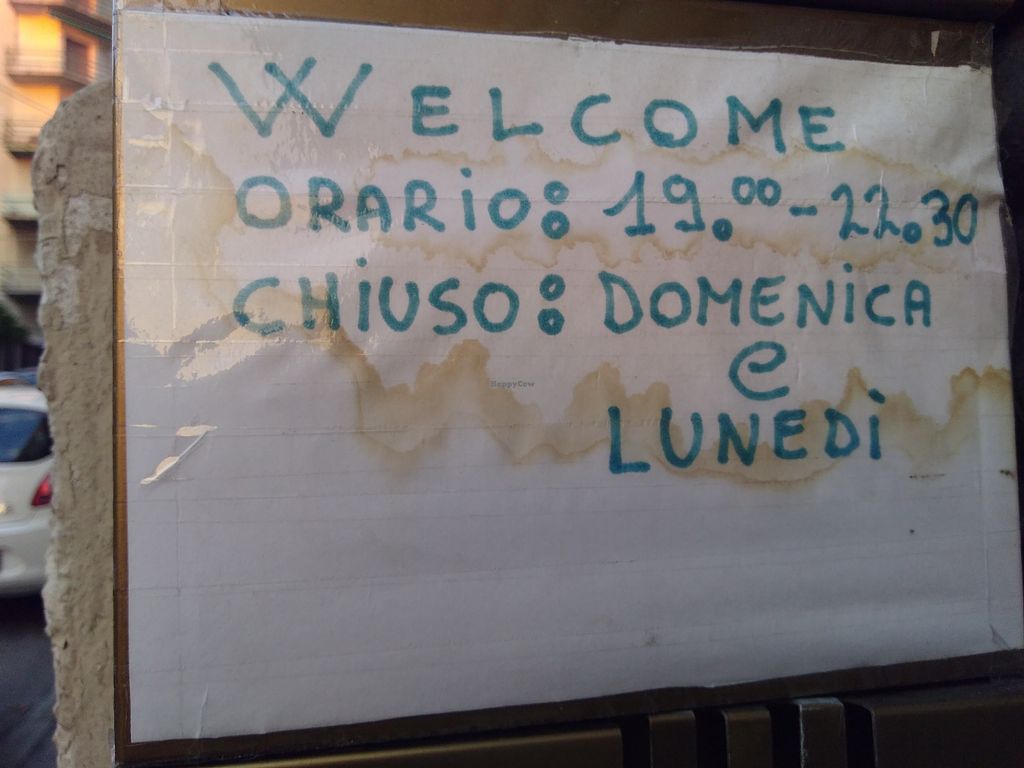 WELCOME
ORARiO: 19.00-22.30
CHiUSO: DOMENiCA
e
LUNEDi
HappyCow